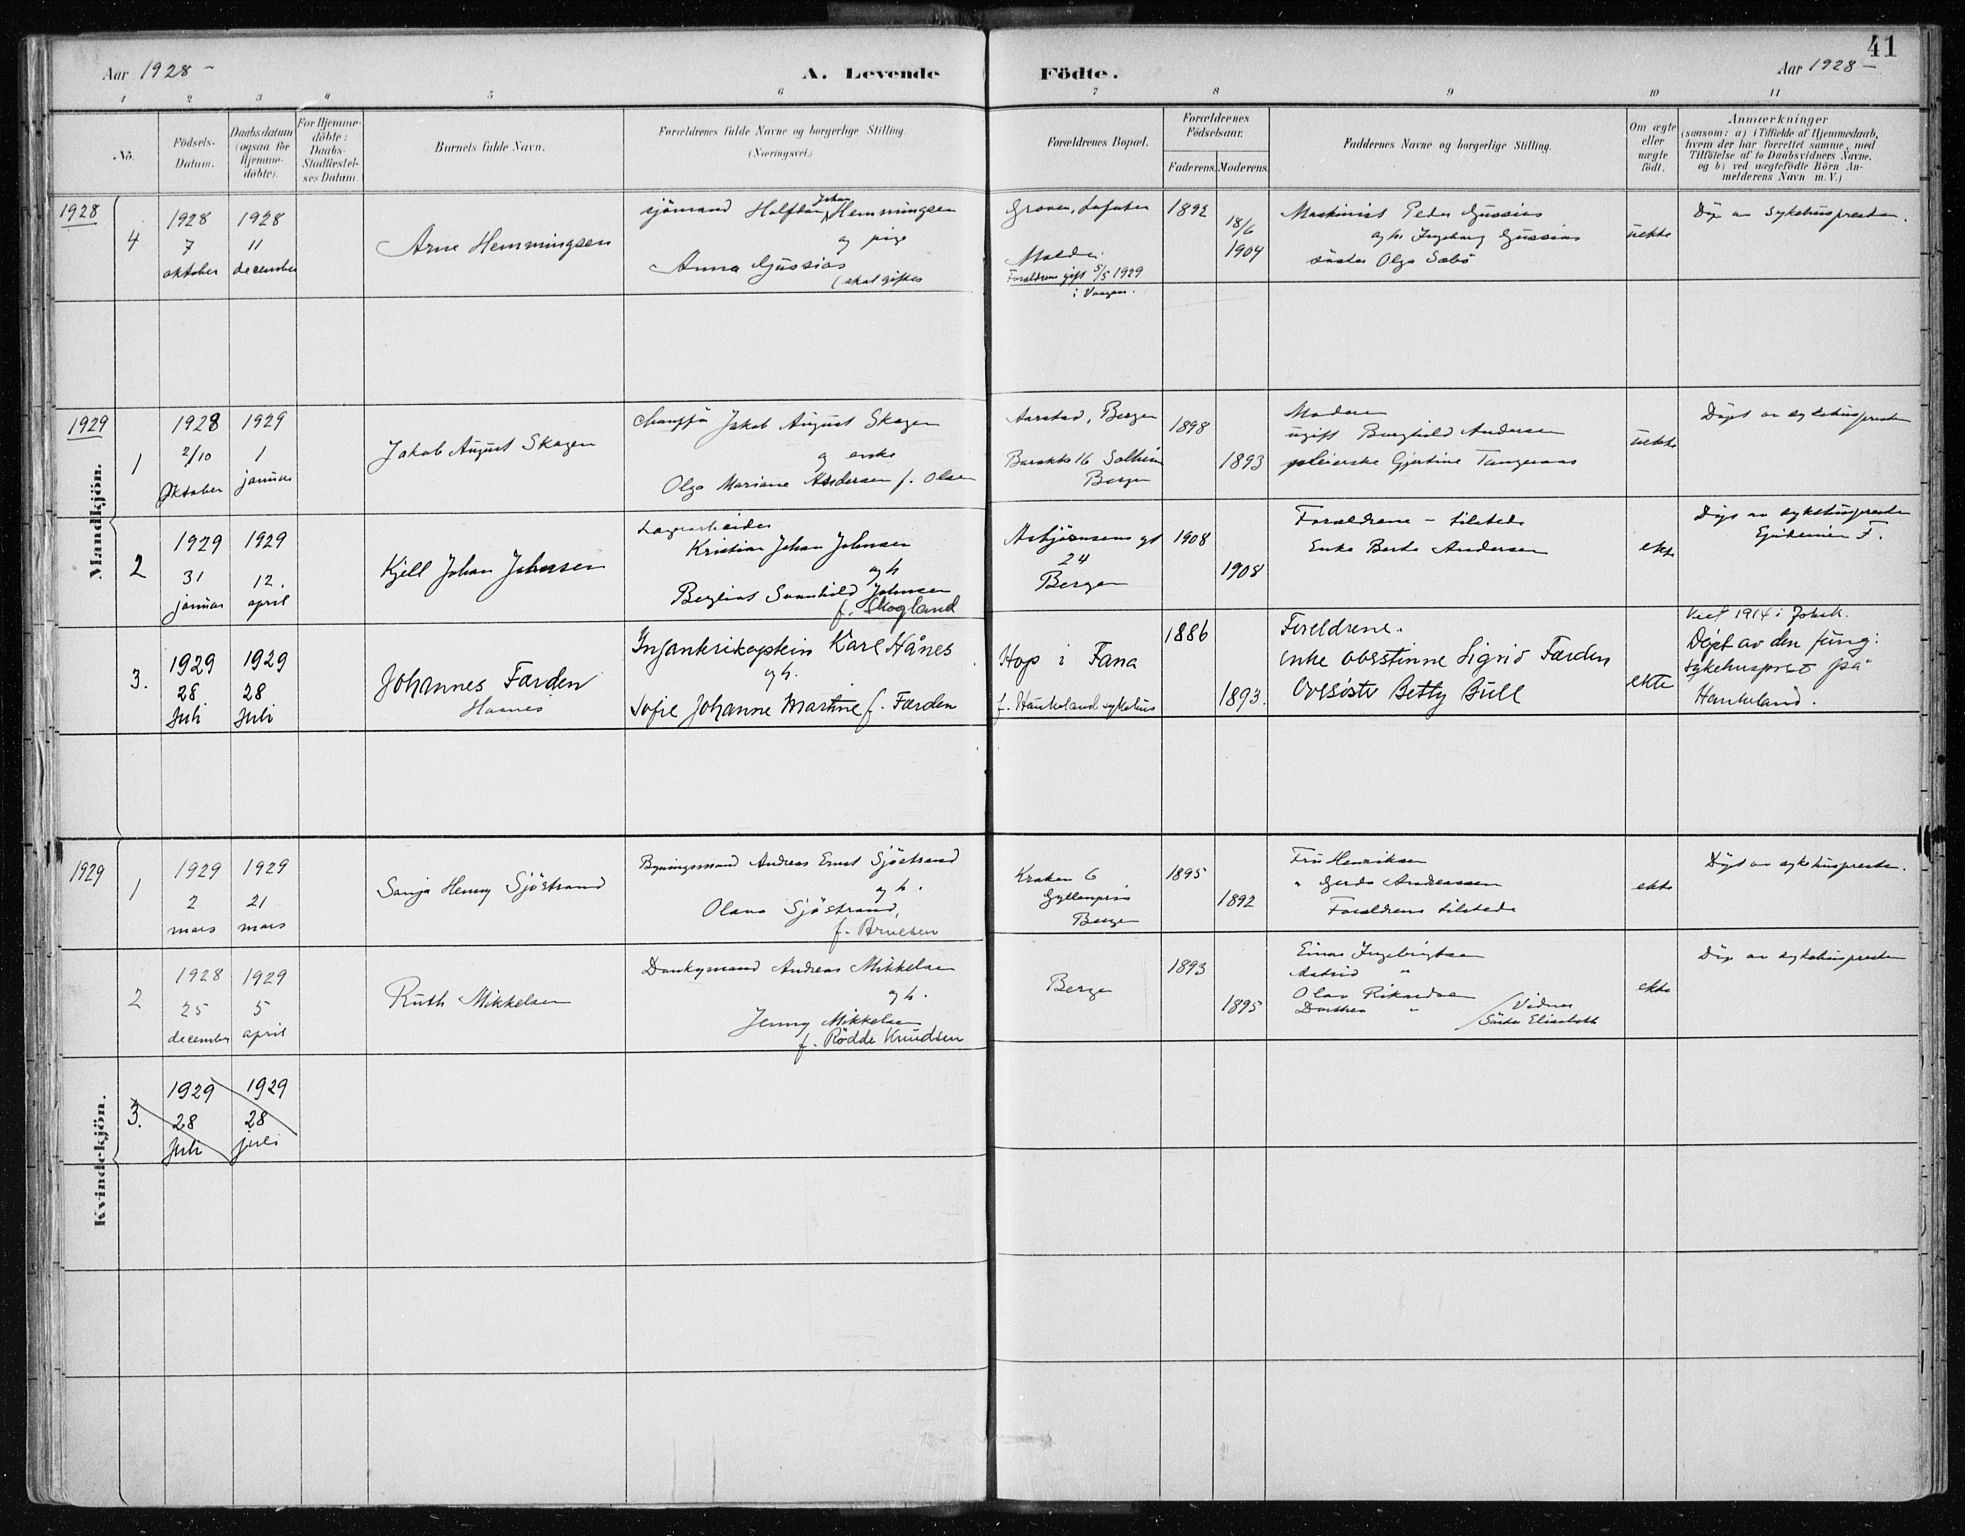 41
Aar 1928 –
A. Levende
Födte.
Aar 1928 –
1 2 3 4 5 6 7 8 9 10 11
No.
Födsels-
Datum.
Daabsdatum
(ogsaa for
Hjemme-
döbte).
For Hjemme-
döbte:
Daabs-
Stadfæstel-
ses Datum.
Barnets fulde Navn.
Forældrenes fulde Navne og borgerlige Stilling.
(Næringsvei.)
Forældrenes Bopæl.
Forældrenes
Födselsaar.
Faderens.
Moderens.
Faddernes Navne og borgerlige Stilling.
Om ægte
eller
uægte
födt.
Anmærkninger
(saasom: a) i Tilfælde af Hjemmedaab,
hvem der har forrettet samme, med
Tilföielse af to Daabsvidners Navne,
og b) ved uægtefödte Börn An-
melderens Navn m. V.)
1928
4
1928
7
oktober
1928
11
december
Arne Hemmingsen
sjömand Halfdan Johan Hemmingsen
og pige
Anna Gussias
(skal giftes
Molde.
Forældrene gift 5/5 1929
i Vaagan.
1892
18/6
1904
Maskinist Peder Gussias
og h. Ingeborg Gussias
söster Olga Sæbö
uekte
Döpt av sykehuspresten.
1929
Mandkjön.
1
1928
2/10
Oktober
1929
1
januar
Jakob August Skagen
Chaufför Jakob August Skagen
og enke
Olga Mariane Andersen f. Olsen
Aarstad, Bergen
Barakke 16 Solheim
Bergen
1898
1893
Moderen
ugift Borghild Andersen
pleierske Gjertine
uekte
Döpt av sykehuspresten
2
1929
31
januar
1929
12.
april
Kjell Johan Johnsen
Lagerarbeider
Kristian Johan Johnsen
og h
Bergliot Svanhild Johnsen
f. Skogland
Asbjörnsens gt
24
Bergen
1908
1908
Forældrene – tilstede
Enke Berta Andersen
ekte
Döpt av sykehuspresten
3.
1929
28
Juli
1929
28
Juli
Johannes Færden
Haanes
Infanterikaptein Karl Hånes
og h.
Sofie Johanne Martine f. Færden
Hop i Fana
f. Haukeland sykehus
1886
1893.
Foreldrene.
enke oberstinne Sigrid Færden
Oversöster Betty Bull
ekte
Viet 1914 i
Döpt av den fung:
sykehusprest på
Haukeland.
1929
Kvindekjön.
1
1929
2
mars
1929
21
mars
Sonja Henny Sjöstrand
Bygningsmand Andreas Ernst Sjöstrand
og h.
Olava Sjöstrand,
f. Arnesen
Kroken 6
Bergen
1895
1892
Fru Henriksen
" Gerda Andreassen
Forældrene tilstede
ekte
Döpt av sykehuspresten.
2
1928
25
december
1929
5
april
Ruth Mikkelsen
Donkymand Andreas Mikkelsen
og h.
Jenny Mikkelsen
f. Rödde Knudsen
Bergen
1893
1895
Einar Ingebrigtsen
Astrid "
Olav Rikardsen
Dorthea "
Söster Elisabeth
ekte
Döpt av sykehuspresten
3.
1929
28
Juli
1929
28
juli